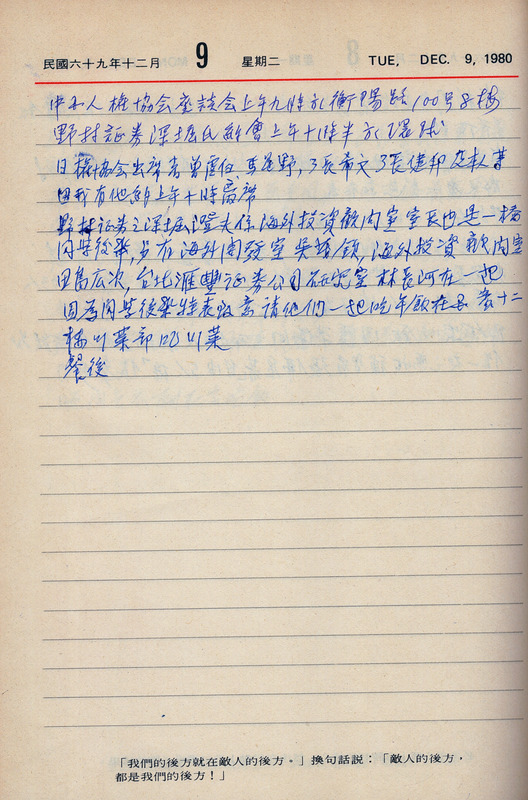 民國六十九年十二月 9 星期二 TUE, DEC. 9, 1980
中和人權協会座談会上午九時于衡陽路100号8楼
野村証券深堀氏餐會上午十時半于環球
人權協会出席者 任、馬 野,張希文張健邦及本人
因我有他約上午十時 席
野村証券之深堀澄夫係海外投資顧问室室長也是一橋
同学後輩,另有海外開發室 ,海外投資顧问室
田島広次,台北滙豐証券公司研究室林長河在一起
因為同学後輩特表敬意請他们一起吃午飯在 十二
楼川菜部吃川菜
餐後
「我們的後方就在敵人的後方。」換句話説:「敵人的後方,
都是我們的後方!」